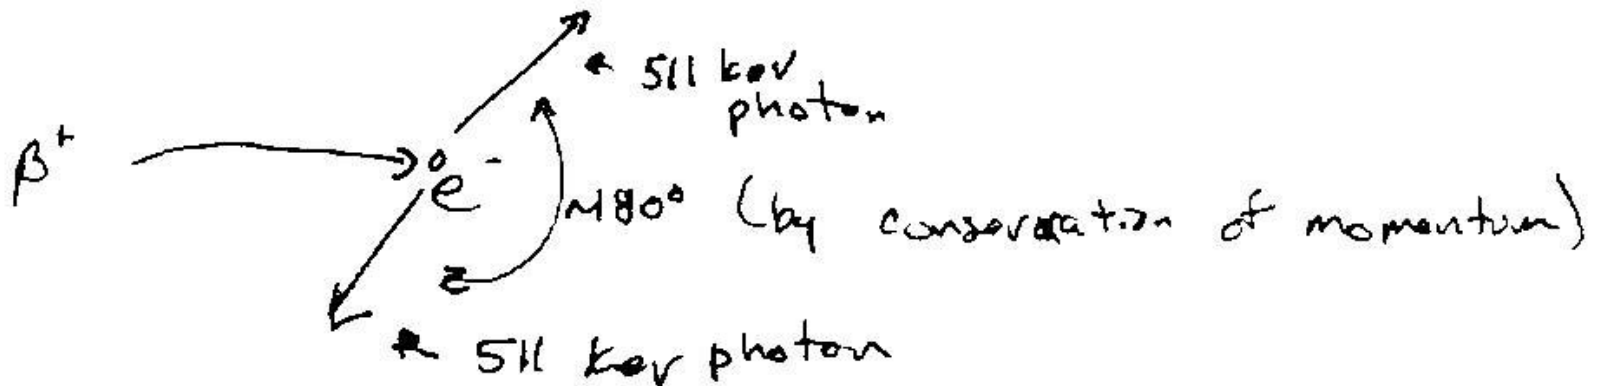 511 kev
photon
β+
e-
~180° (by conservation of momentum)
511 kev photon